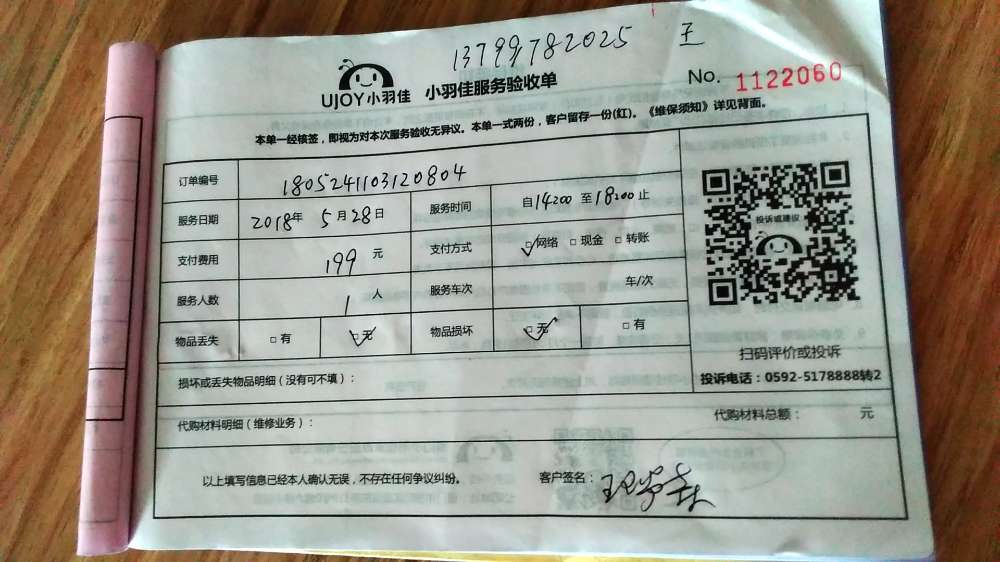 13799782025 王
UJOY小羽佳 小羽佳服务验收单 No. 1122060
本单一经核签，即视为对本次服务验收无异议。本单一式两份，客户留存一份(红)。《维保须知》详见背面。
订单编号 1805241103120804
服务日期 2018年 5月28日 服务时间 自14200 至18200止
支付费用 199 元 支付方式 □网络 □现金 □转账
服务人数 1 人 服务车次 车/次
物品丢失 □有 □无 物品损坏 □无 □有
投诉或建议
扫码评价或投诉
投诉电话：0592-5178888转2
损坏或丢失物品明细（没有可不填）：
代购材料明细（维修业务）： 代购材料总额： 元
以上填写信息已经本人确认无误，不存在任何争议纠纷。 客户签名：